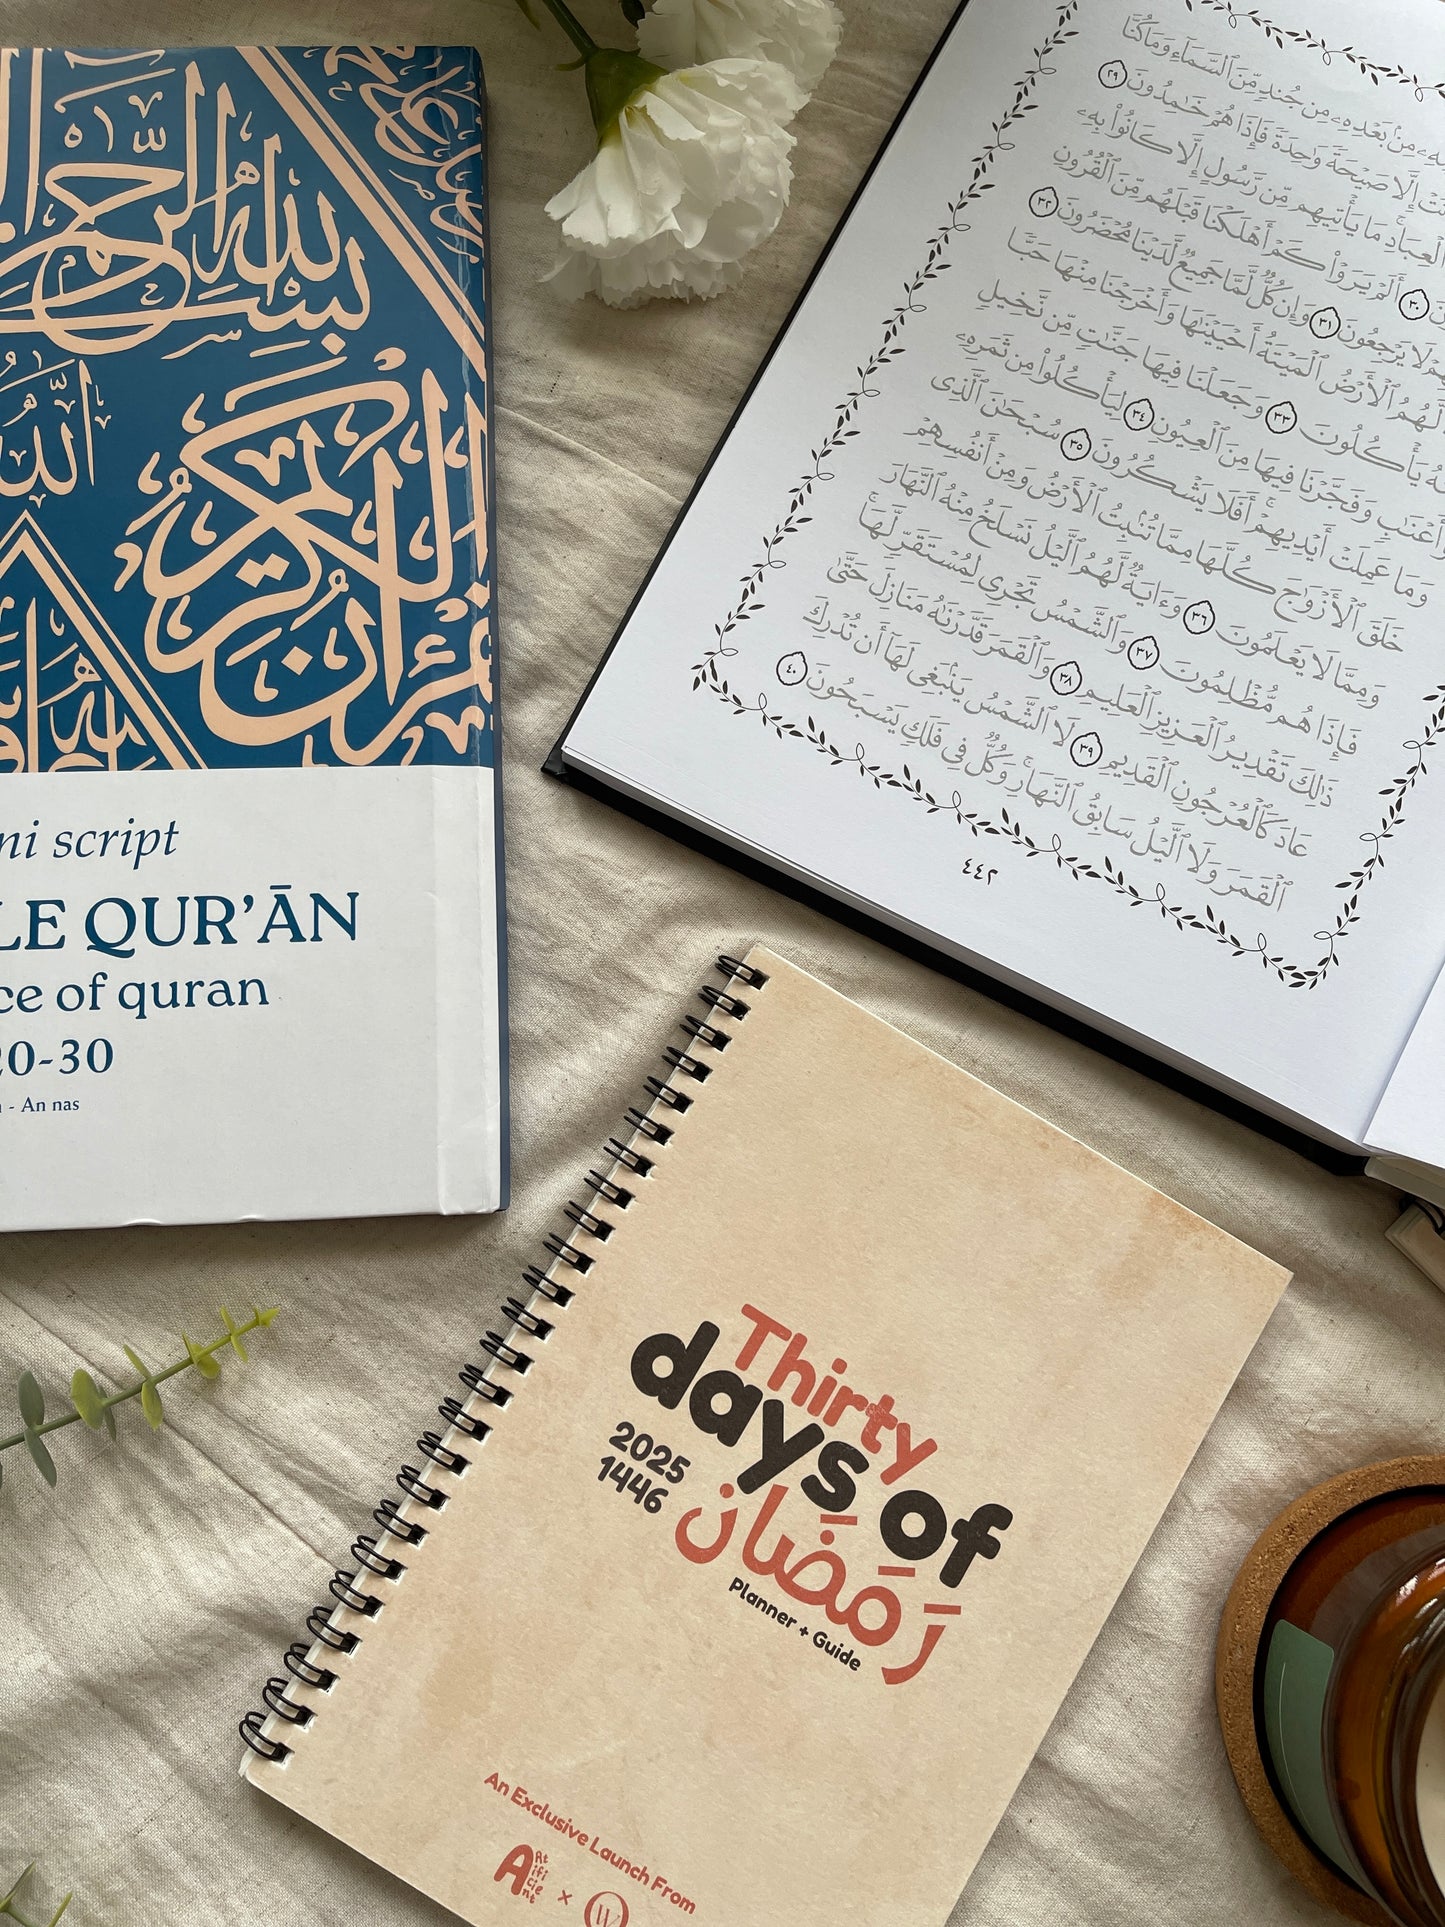 ni script
LE QUR'ĀN
ce of quran
20-30
- An nas
بِسْمِ ٱللَّهِ ٱلرَّحْمَٰنِ
ٱلْقُرْآن ٱلْكَرِيم
مِنۢ بَعْدِهِۦ مِن جُندٍ مِّنَ ٱلسَّمَآءِ وَمَا كُنَّا
إِلَّا صَيْحَةً وَٰحِدَةً فَإِذَا هُمْ خَٰمِدُونَ ٢٩
ٱلْعِبَادِ ۚ مَا يَأْتِيهِم مِّن رَّسُولٍ إِلَّا كَانُوا۟ بِهِۦ
٣٠ أَلَمْ يَرَوْا۟ كَمْ أَهْلَكْنَا قَبْلَهُم مِّنَ ٱلْقُرُونِ
لَا يَرْجِعُونَ ٣١ وَإِن كُلٌّ لَّمَّا جَمِيعٌ لَّدَيْنَا مُحْضَرُونَ ٣٢
لَّهُمُ ٱلْأَرْضُ ٱلْمَيْتَةُ أَحْيَيْنَٰهَا وَأَخْرَجْنَا مِنْهَا حَبًّا
يَأْكُلُونَ ٣٣ وَجَعَلْنَا فِيهَا جَنَّٰتٍ مِّن نَّخِيلٍ
أَعْنَٰبٍ وَفَجَّرْنَا فِيهَا مِنَ ٱلْعُيُونِ ٣٤ لِيَأْكُلُوا۟ مِن ثَمَرِهِۦ
وَمَا عَمِلَتْ أَيْدِيهِمْ ۖ أَفَلَا يَشْكُرُونَ ٣٥ سُبْحَٰنَ ٱلَّذِى
خَلَقَ ٱلْأَزْوَٰجَ كُلَّهَا مِمَّا تُنۢبِتُ ٱلْأَرْضُ وَمِنْ أَنفُسِهِمْ
وَمِمَّا لَا يَعْلَمُونَ ٣٦ وَءَايَةٌ لَّهُمُ ٱلَّيْلُ نَسْلَخُ مِنْهُ ٱلنَّهَارَ
فَإِذَا هُم مُّظْلِمُونَ ٣٧ وَٱلشَّمْسُ تَجْرِى لِمُسْتَقَرٍّ لَّهَا ۚ
ذَٰلِكَ تَقْدِيرُ ٱلْعَزِيزِ ٱلْعَلِيمِ ٣٨ وَٱلْقَمَرَ قَدَّرْنَٰهُ مَنَازِلَ حَتَّىٰ
عَادَ كَٱلْعُرْجُونِ ٱلْقَدِيمِ ٣٩ لَا ٱلشَّمْسُ يَنۢبَغِى لَهَآ أَن تُدْرِكَ
ٱلْقَمَرَ وَلَا ٱلَّيْلُ سَابِقُ ٱلنَّهَارِ ۚ وَكُلٌّ فِى فَلَكٍ يَسْبَحُونَ ٤٠
٤٤٢
Thirty
days of
2025
1446
رَمَضَان
Planner + Guide
An Exclusive Launch From
Artificient
x